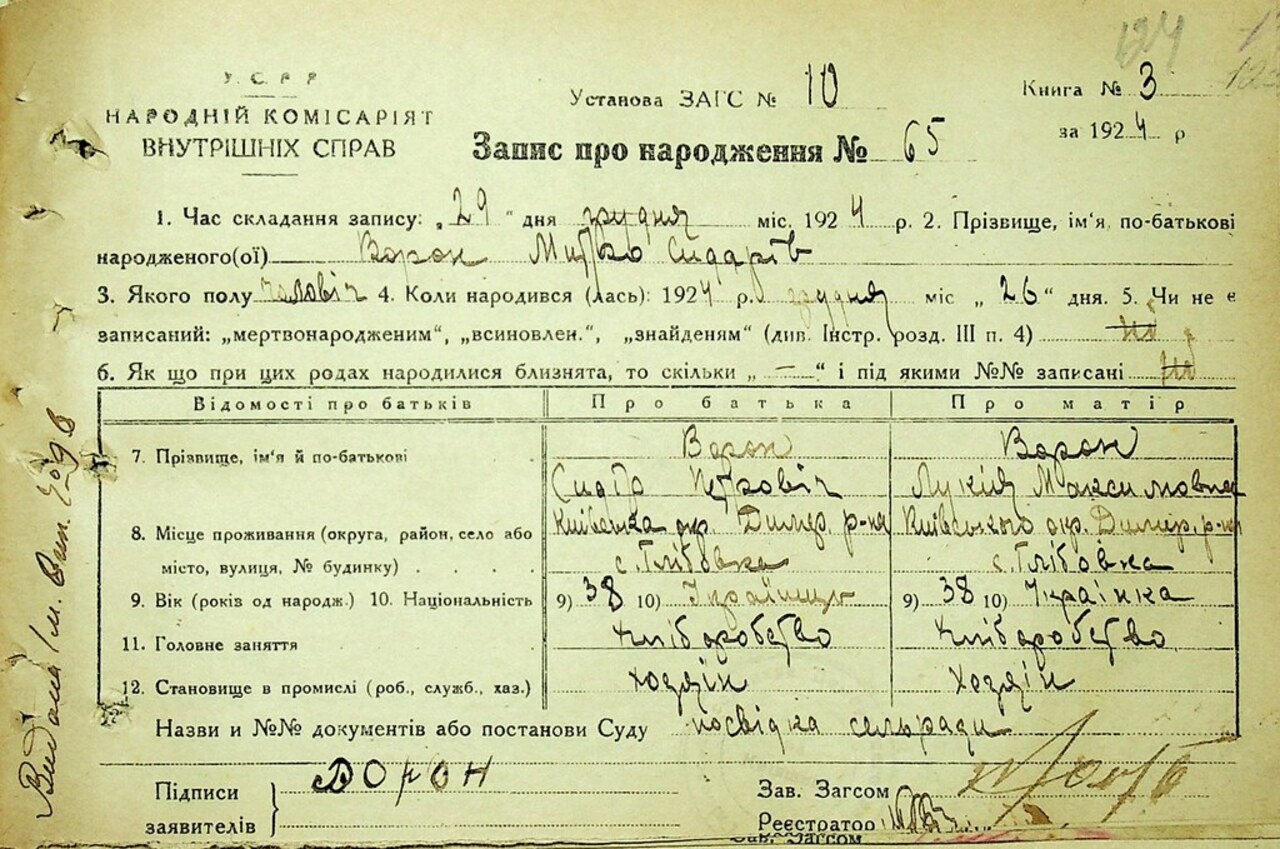 У.С.Р.Р
НАРОДНІЙ КОМІСАРІЯТ
ВНУТРІШНІХ СПРАВ
Установа ЗАГС № 10
Книга № 3
за 1924 р
Запис про народження № 65
1. Час складання запису: „29“ дня грудня міс. 1924 р. 2. Прізвище, ім'я, по-батькові
народженого(ої) Ворон Митро Сидарів
3. Якого полу чоловіч 4. Коли народився (лась): 1924 р. грудня міс „26“ дня. 5. Чи не є
записаний: „мертвонародженим“, „всиновлен.“, „знайденям“ (див. Інстр. розд. III п. 4) ні
6. Як що при цих родах народилися близнята, то скільки „—“ і під якими №№ записані ні
Відомості про батьків Про батька Про матір
7. Прізвище, ім'я й по-батькові Ворон Ворон
Сидір Петровіч Лукія Максимовна
8. Місце проживання (округа, район, село або Київська окр. Димер. р-на Київського окр. Димер. р-на
місто, вулиця, № будинку) . . . . с. Глібовка с. Глібовка
9. Вік (років од народж.) 10. Національність 9) 38 10) Українць 9) 38 10) Українка
11. Головне заняття Хліборобство Хліборобство
12. Становище в промислі (роб., служб., хаз.) Хозяін Хозяін
Назви и №№ документів або постанови Суду посвідка сельради
Підписи
заявителів
ВОРОН
Зав. Загсом
Реєстратор
Зав. Загсом
Видана